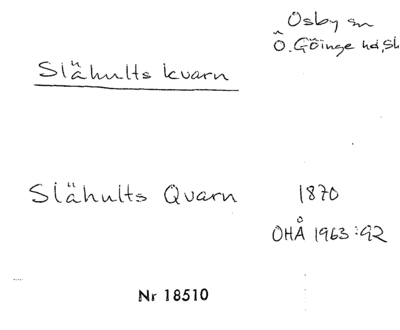 Osby sn
Ö. Göinge hd, Sk
Slähults kvarn
Slähults Qvarn 1870
OHÅ 1963:92
Nr 18510